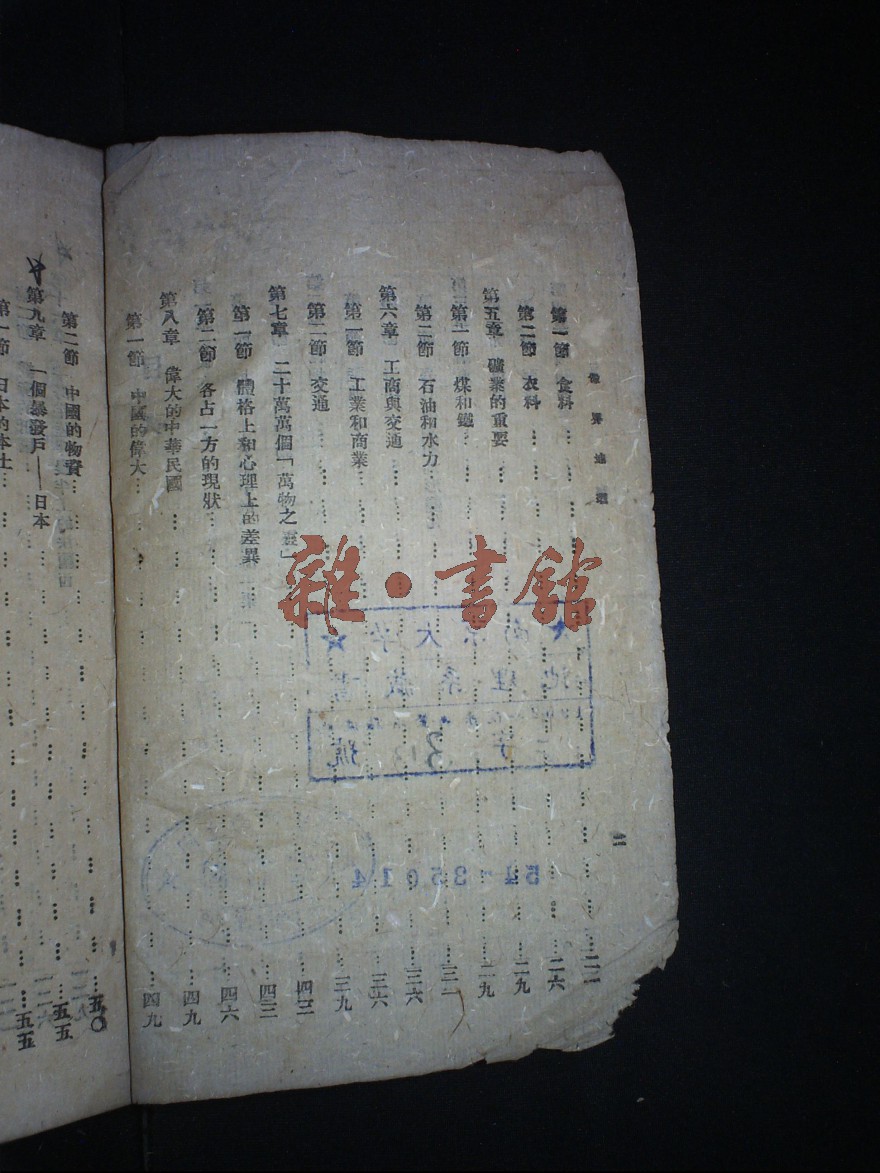 第一節 食料 二二
第二節 衣料 二六
第五章 礦業的重要 二九
第一節 煤和鐵 二九
第二節 石油和水力 三二
第六章 工商與交通 三六
第一節 工業和商業 三六
第二節 交通 三九
第七章 二十萬萬個「萬物之靈」 四三
第一節 體格上和心理上的差異 四三
第二節 各占一方的現狀 四六
第八章 偉大的中華民國 四九
第一節 中國的偉大 四九
第二節 中國的物資 五〇
第九章 一個暴發戶——日本 五五
第一節 日本的本土 五五
二
雜·書館
大
號
54-35014